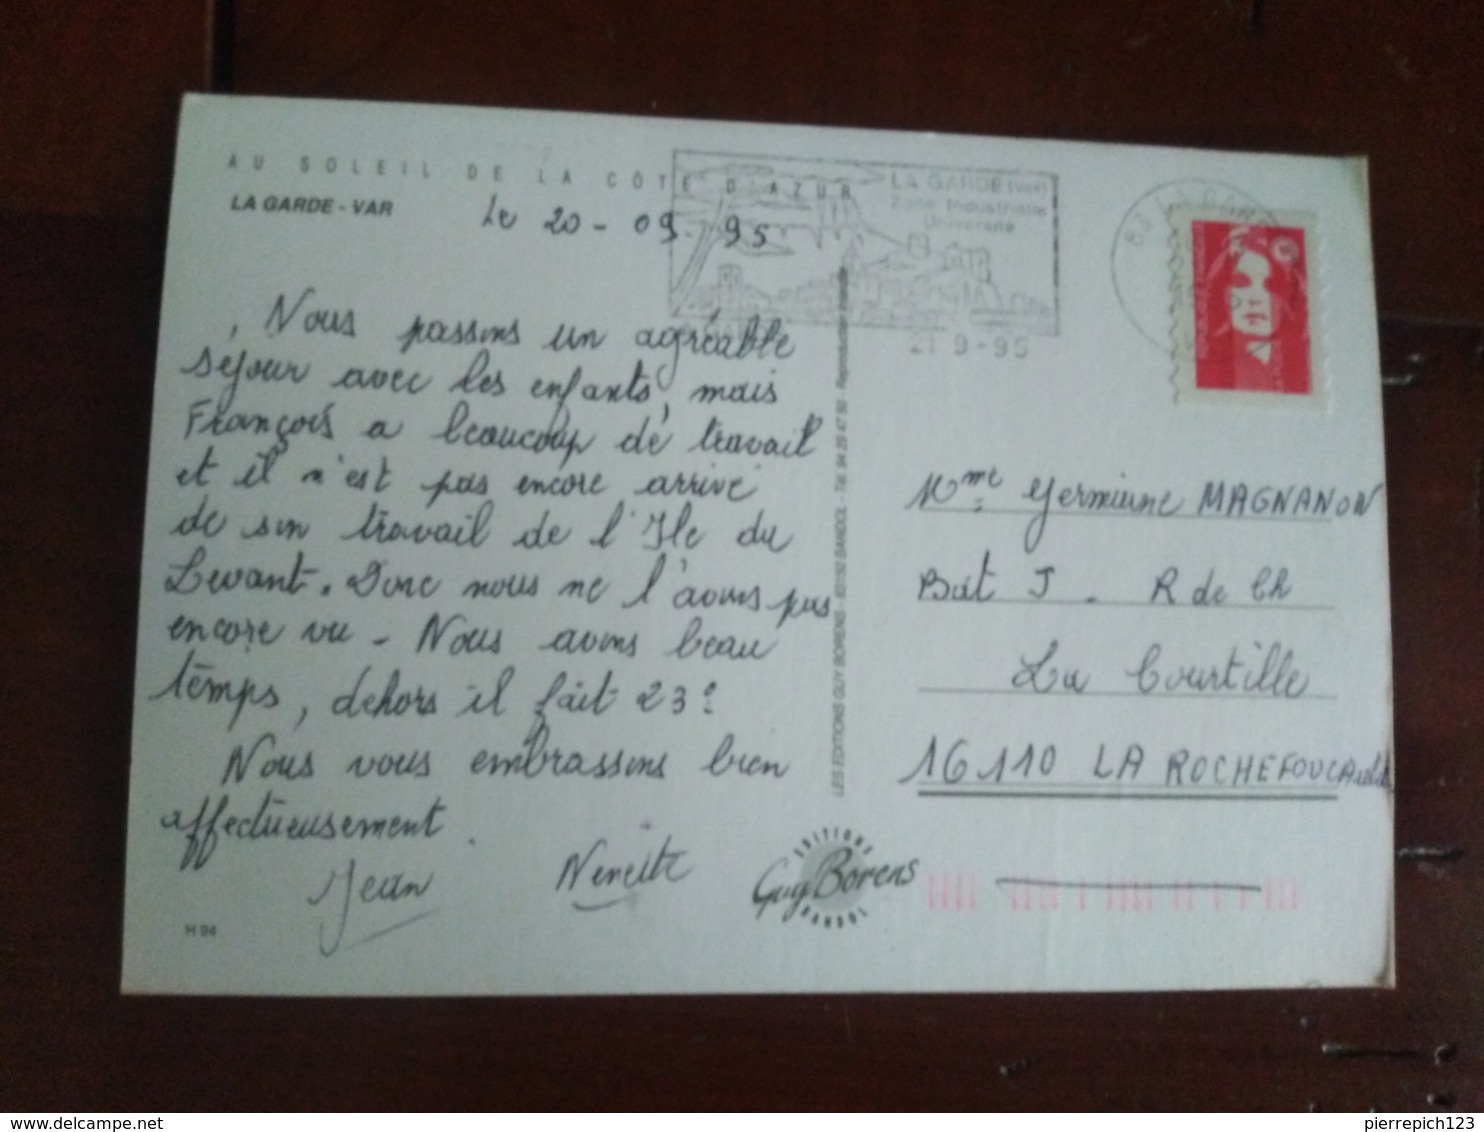 AU SOLEIL DE LA CÔTE D'AZUR
LA GARDE - VAR
Le 20 - 09 - 95
LA GARDE (Var)
Zone Industrielle
Université
21 9 - 95
83 LA GARDE
Nous passons un agréable
séjour avec les enfants, mais
François a beaucoup de travail
et il n'est pas encore arrivé
de son travail de l'Ile du
Levant. Donc nous ne l'avons pas
encore vu - Nous avons beau
temps, dehors il fait 23°
Nous vous embrassons bien
affectueusement.
Jean Nenette
H 94
LES EDITIONS GUY BORENS - 83150 BANDOL - Tél. 94 29 47 50 - Reproduction interdite
EDITIONS
Guy Borens
BANDOL
Mme Germiane MAGNANON
Bat J - R de Ch
La Courtille
16110 LA ROCHEFOUCAuld
pierrepich123